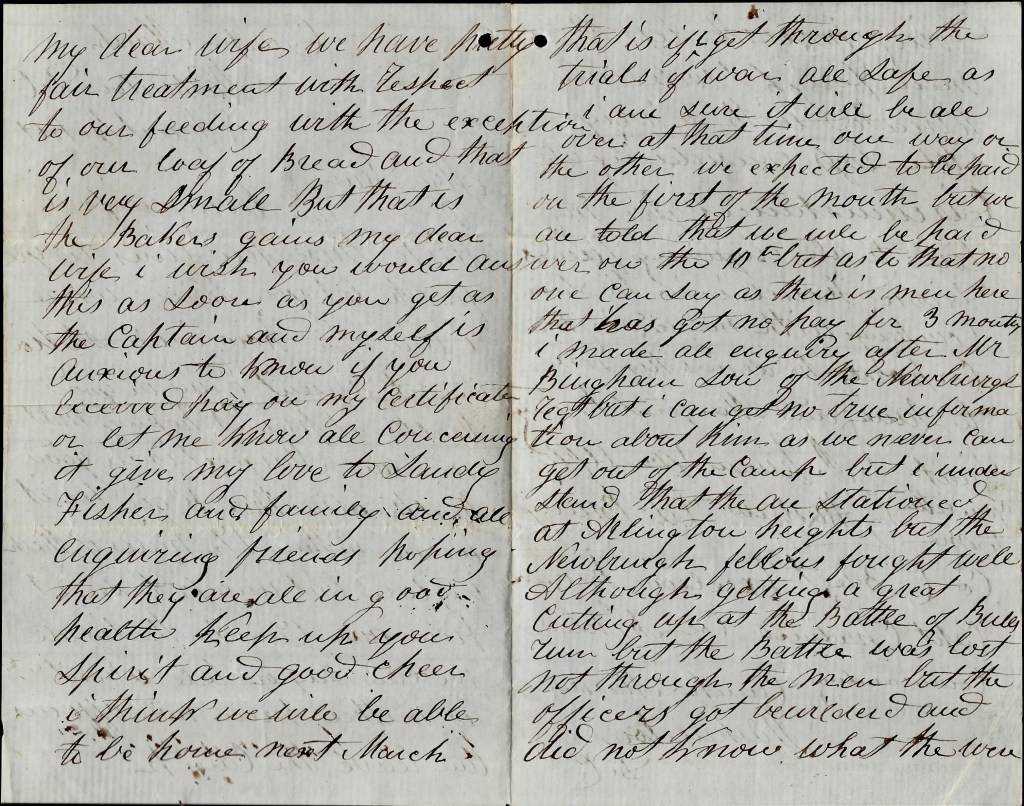 my dear wife we have pretty
fair treatment with respect
to our feeding with the exception
of our loaf of Bread and that
is very Small But that is
the Bakers gains my dear
wife i wish you would answer
this as Soon as you get as
the Captain and myself is
anxious to know if you
received pay on my certificate
or let me know all Concerning
it give my love to Sandy
Fisher and family and all
enquiring friends hoping
that they are all in good
health Keep up your
Spirit and good cheer
i think we will be able
to be home next March
that is if i get through the
trials of war all Safe as
i am sure it will be all
over at that time one way or
the other we expected to be paid
on the first of the month but we
are told that we will be paid
on the 10th but as to that no
one can Say as their is men here
that has got no pay for 3 months
i made all enquiry after Mr
Bingham Son of the Newburgh
regt but i can get no true informa
tion about him as we never can
get out of the Camp but i under
stand that the are Stationed
at Arlington heights but the
Newburgh fellows fought well
Although getting a great
Cutting up at the Battle of Bulls
run but the Battle was lost
not through the men but the
officers got bewilderd and
did not know what the were